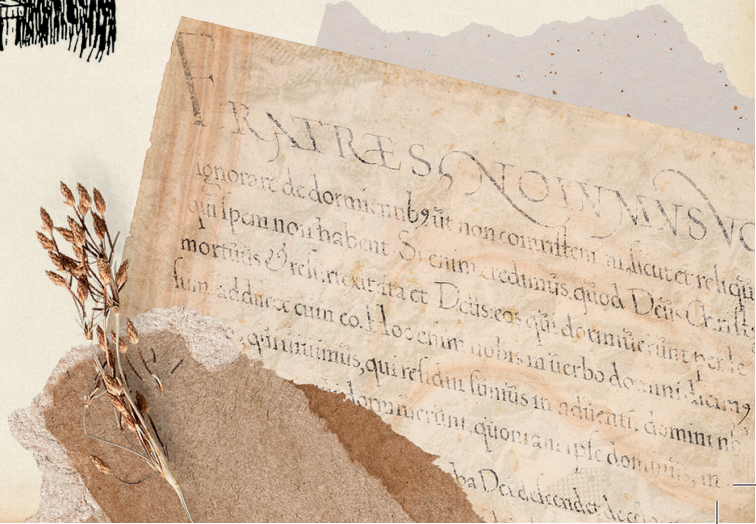 FRATRES NOLVMVS VO
ignorare de dormientib9 ut non contristem sicut et reliqui
qui spem non habent Si enim credimus quod Deus Christ
mortuus & resurrexit ita et Deus eos qui dormierunt per
sum adducet cum eo. Hoc enim nobis in uerbo domini dicim9
qui uiuimus, qui residui sumus in aduentu domini
dormierunt, quoniam ipse dominus, in
ba Dei descendet de